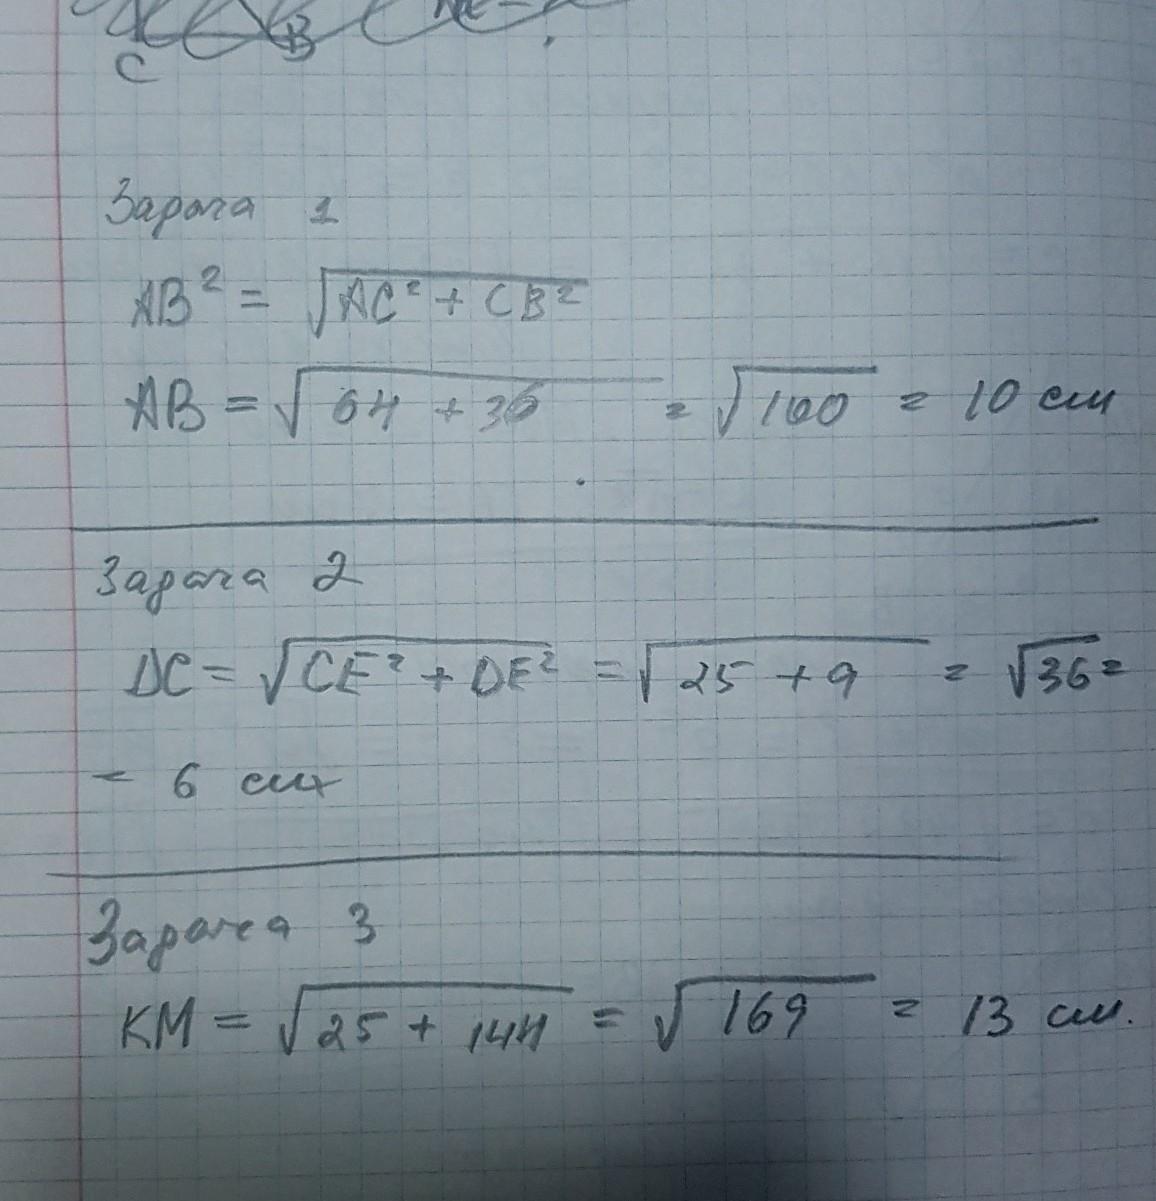 C
B
Задача 1
AB² = √AC² + CB²
AB = √64 + 36 = √100 = 10 см
Задача 2
DC = √CE² + DE² = √25 + 9 = √36 =
= 6 см
Задача 3
KM = √25 + 144 = √169 = 13 см.